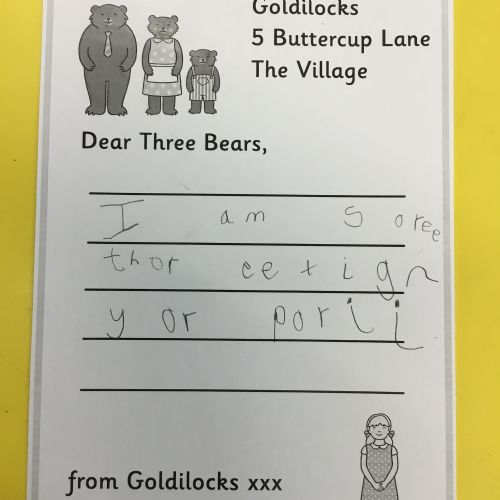 Goldilocks
5 Buttercup Lane
The Village
Dear Three Bears,
I am soree
thor
yor
from Goldilocks xxx